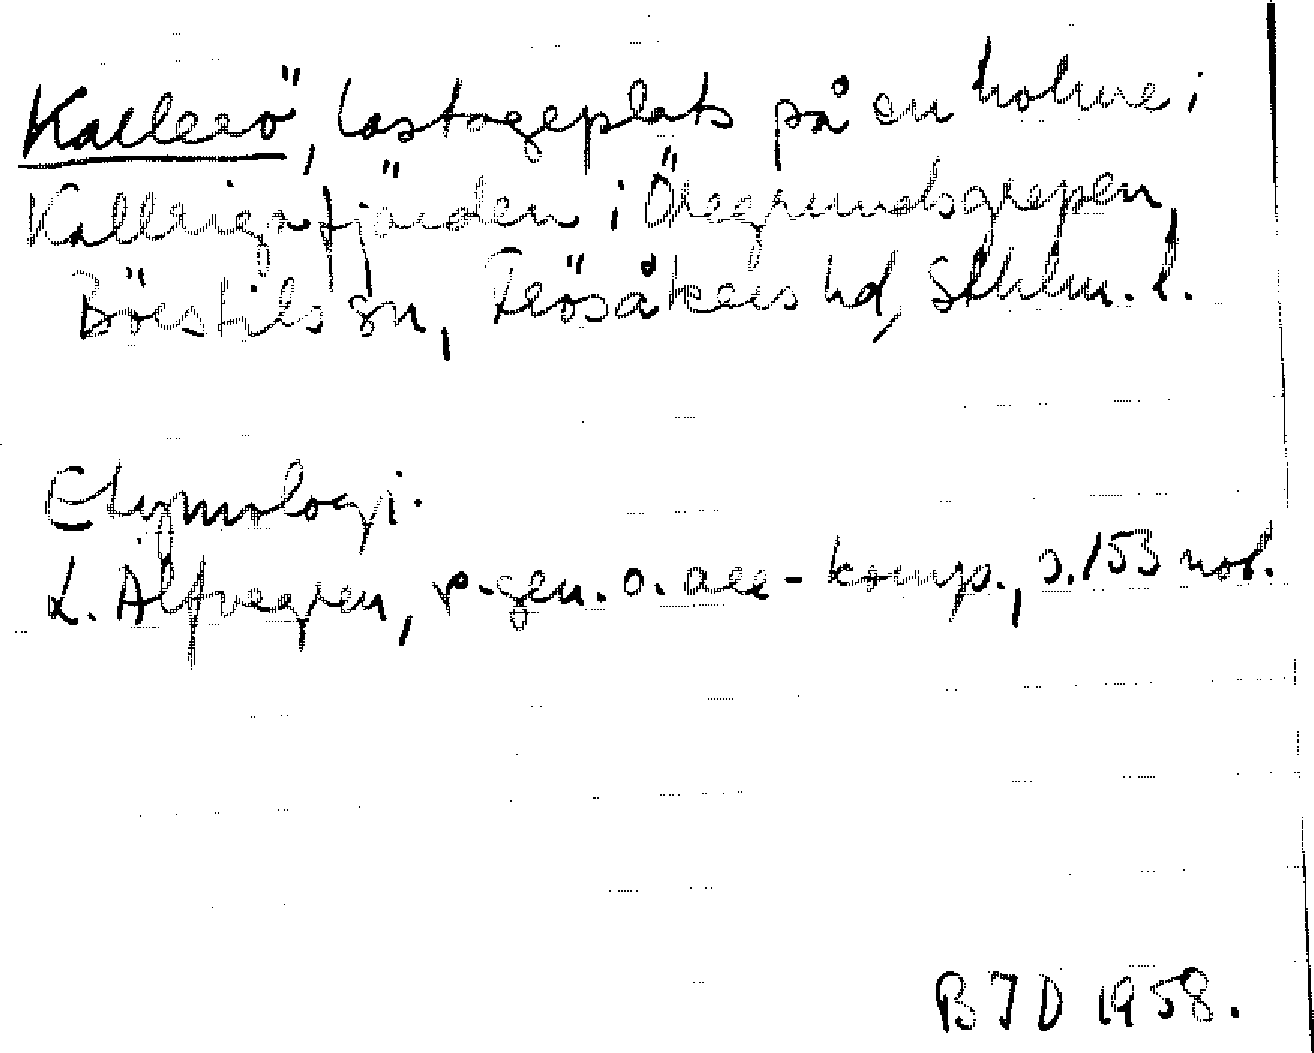 Kallerö, lastageplats på en holme i
Kallrigafjärden i Öregrundsgrepen,
Börstils sn, Frösåkers hd, Sthlm. l.
Etymologi.
L. Alfvegren, r-gen. o. are-komp., s. 153 not.
BJD 1958.